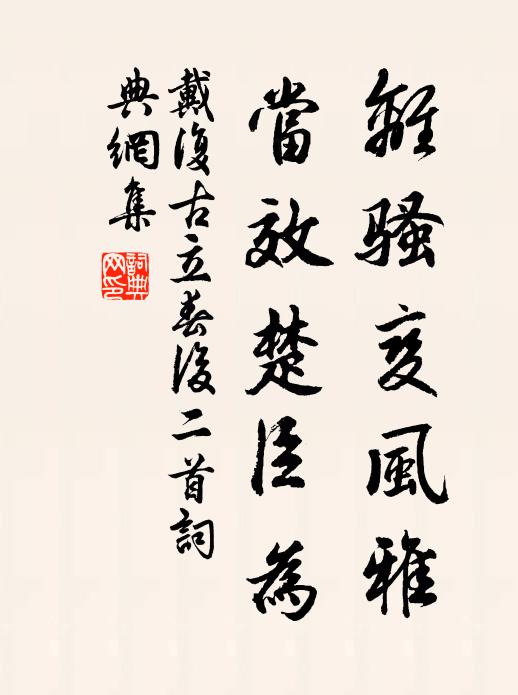 離騷变風雅
當效楚臣為
戴復古立春後二首詞
典網集
詞典网印